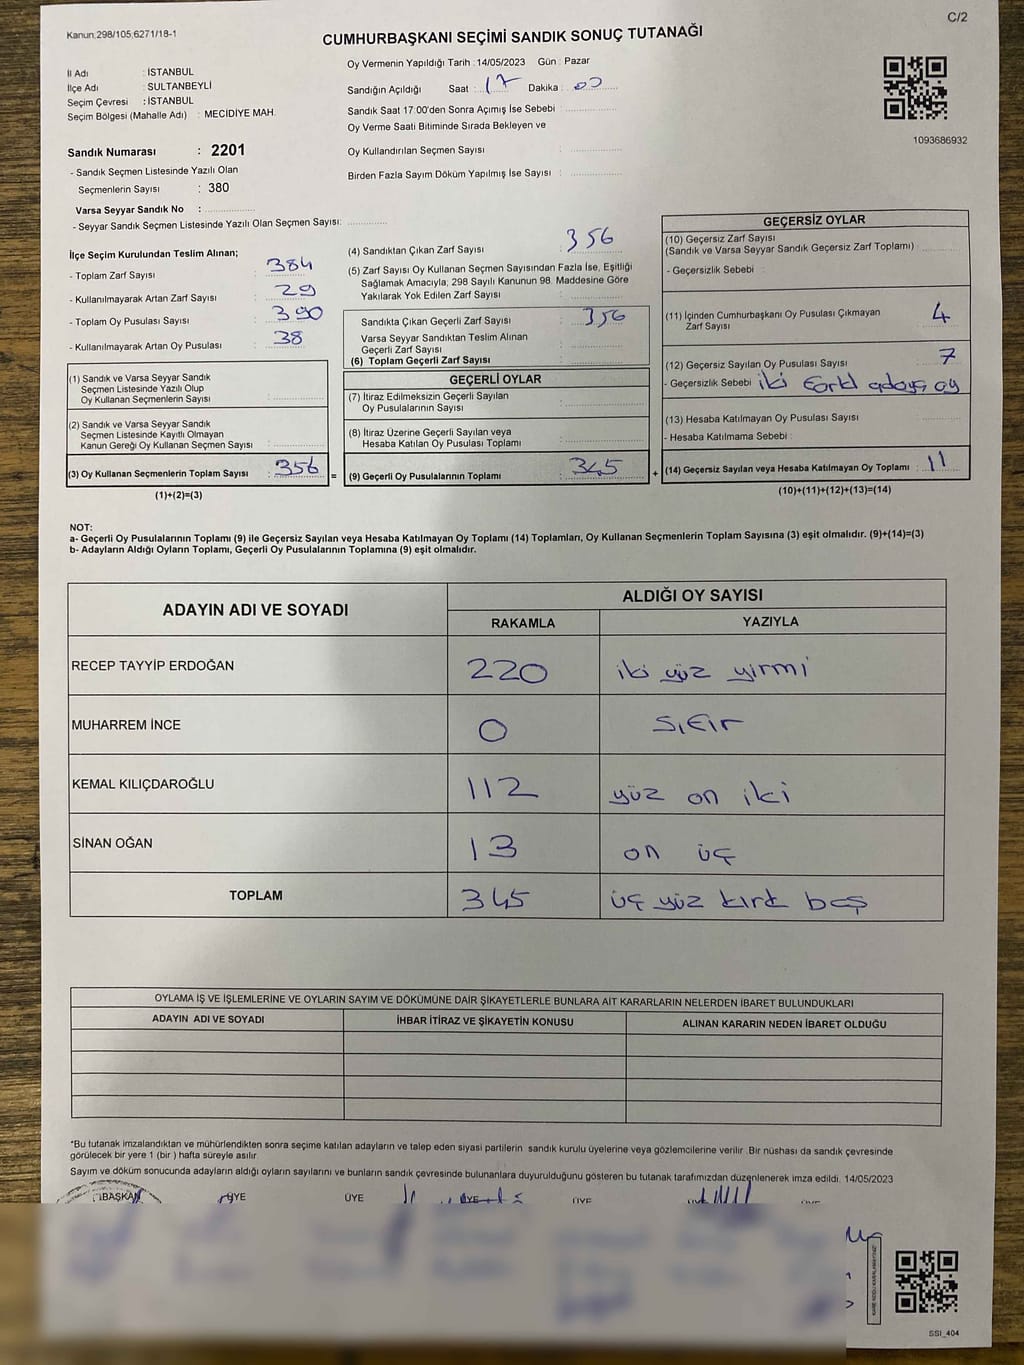 Kanun;298/105;6271/18-1
C/2
CUMHURBAŞKANI SEÇİMİ SANDIK SONUÇ TUTANAĞI
İl Adı : İSTANBUL
İlçe Adı : SULTANBEYLİ
Seçim Çevresi : İSTANBUL
Seçim Bölgesi (Mahalle Adı) : MECİDİYE MAH.
Oy Vermenin Yapıldığı Tarih : 14/05/2023 Gün : Pazar
Sandığın Açıldığı Saat : 17 Dakika : 00
Sandık Saat 17:00'den Sonra Açılmış İse Sebebi :
Oy Verme Saati Bitiminde Sırada Bekleyen ve
Oy Kullandırılan Seçmen Sayısı :
Birden Fazla Sayım Döküm Yapılmış İse Sayısı :
1093686932
Sandık Numarası : 2201
- Sandık Seçmen Listesinde Yazılı Olan
Seçmenlerin Sayısı : 380
Varsa Seyyar Sandık No :
- Seyyar Sandık Seçmen Listesinde Yazılı Olan Seçmen Sayısı:
İlçe Seçim Kurulundan Teslim Alınan;
- Toplam Zarf Sayısı : 384
- Kullanılmayarak Artan Zarf Sayısı : 29
- Toplam Oy Pusulası Sayısı : 390
- Kullanılmayarak Artan Oy Pusulası : 38
(1) Sandık ve Varsa Seyyar Sandık
Seçmen Listesinde Yazılı Olup
Oy Kullanan Seçmenlerin Sayısı :
(2) Sandık ve Varsa Seyyar Sandık
Seçmen Listesinde Kayıtlı Olmayan
Kanun Gereği Oy Kullanan Seçmen Sayısı :
(3) Oy Kullanan Seçmenlerin Toplam Sayısı : 356 =
(1)+(2)=(3)
(4) Sandıktan Çıkan Zarf Sayısı : 356
(5) Zarf Sayısı Oy Kullanan Seçmen Sayısından Fazla İse, Eşitliği
Sağlamak Amacıyla; 298 Sayılı Kanunun 98. Maddesine Göre
Yakılarak Yok Edilen Zarf Sayısı :
Sandıkta Çıkan Geçerli Zarf Sayısı : 356
Varsa Seyyar Sandıktan Teslim Alınan
Geçerli Zarf Sayısı :
(6) Toplam Geçerli Zarf Sayısı :
GEÇERLİ OYLAR
(7) İtiraz Edilmeksizin Geçerli Sayılan
Oy Pusulalarının Sayısı :
(8) İtiraz Üzerine Geçerli Sayılan veya
Hesaba Katılan Oy Pusulası Toplamı :
(9) Geçerli Oy Pusulalarının Toplamı : 345 +
GEÇERSİZ OYLAR
(10) Geçersiz Zarf Sayısı
(Sandık ve Varsa Seyyar Sandık Geçersiz Zarf Toplamı) :
- Geçersizlik Sebebi :
(11) İçinden Cumhurbaşkanı Oy Pusulası Çıkmayan
Zarf Sayısı : 4
(12) Geçersiz Sayılan Oy Pusulası Sayısı : 7
- Geçersizlik Sebebi : iki farklı adaya oy
(13) Hesaba Katılmayan Oy Pusulası Sayısı :
- Hesaba Katılmama Sebebi :
(14) Geçersiz Sayılan veya Hesaba Katılmayan Oy Toplamı : 11
(10)+(11)+(12)+(13)=(14)
NOT:
a- Geçerli Oy Pusulalarının Toplamı (9) ile Geçersiz Sayılan veya Hesaba Katılmayan Oy Toplamı (14) Toplamları, Oy Kullanan Seçmenlerin Toplam Sayısına (3) eşit olmalıdır. (9)+(14)=(3)
b- Adayların Aldığı Oyların Toplamı, Geçerli Oy Pusulalarının Toplamına (9) eşit olmalıdır.
ADAYIN ADI VE SOYADI
ALDIĞI OY SAYISI
RAKAMLA YAZIYLA
RECEP TAYYİP ERDOĞAN 220 iki yüz yirmi
MUHARREM İNCE 0 Sıfır
KEMAL KILIÇDAROĞLU 112 yüz on iki
SİNAN OĞAN 13 on üç
TOPLAM 345 üç yüz kırk beş
OYLAMA İŞ VE İŞLEMLERİNE VE OYLARIN SAYIM VE DÖKÜMÜNE DAİR ŞİKAYETLERLE BUNLARA AİT KARARLARIN NELERDEN İBARET BULUNDUKLARI
ADAYIN ADI VE SOYADI İHBAR İTİRAZ VE ŞİKAYETİN KONUSU ALINAN KARARIN NEDEN İBARET OLDUĞU
*Bu tutanak imzalandıktan ve mühürlendikten sonra seçime katılan adayların ve talep eden siyasi partilerin sandık kurulu üyelerine veya gözlemcilerine verilir .Bir nüshası da sandık çevresinde
görülecek bir yere 1 (bir ) hafta süreyle asılır.
Sayım ve döküm sonucunda adayların aldığı oyların sayılarını ve bunların sandık çevresinde bulunanlara duyurulduğunu gösteren bu tutanak tarafımızdan düzenlenerek imza edildi. 14/05/2023
BAŞKAN ÜYE ÜYE ÜYE ÜYE
SSI_404